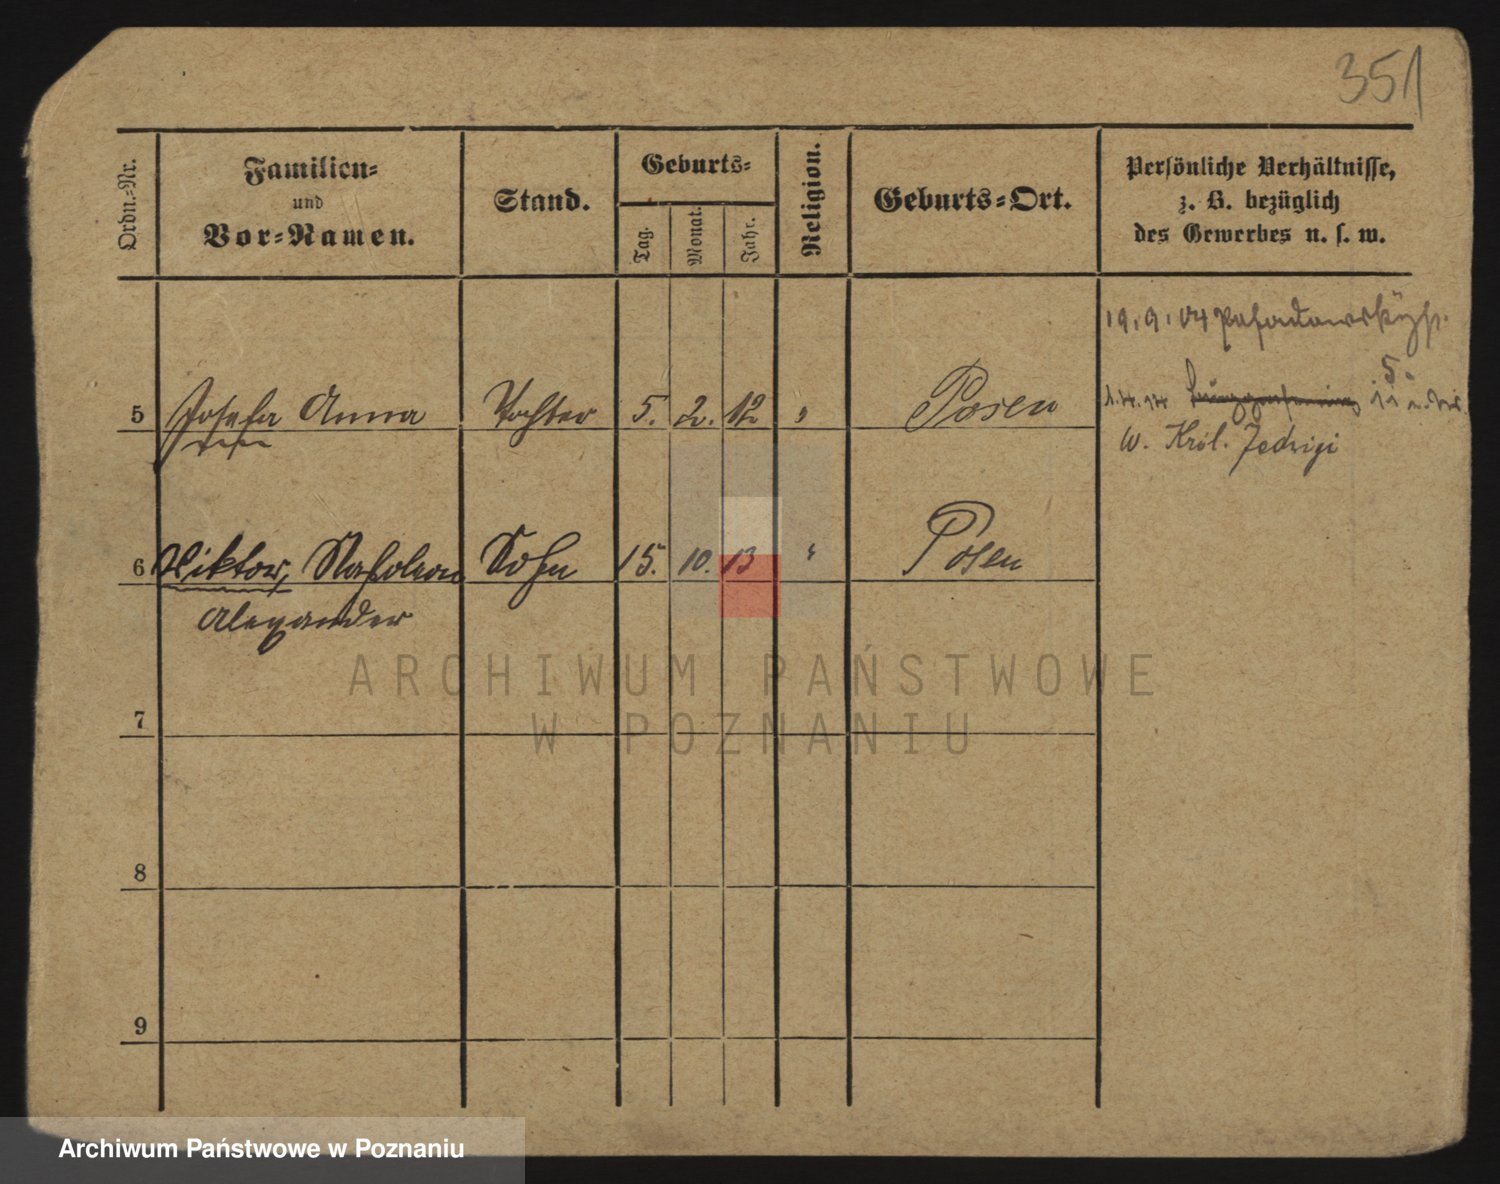 351
Ordn.-Nr. Familien- und Vor-Namen. Stand. Geburts- Tag. Monat. Jahr. Religion. Geburts-Ort. Persönliche Verhältnisse, z. B. bezüglich des Gewerbes u. s. w.
19.9.04
5 Josefa Anna Tochter 5. 2. 12 " Posen
W. Król. Jadwigi
6 Viktor, Napoleon Sohn 15. 10. 13 " Posen
Alexander
7
8
9
ARCHIWUM PAŃSTWOWE
W POZNANIU
Archiwum Państwowe w Poznaniu